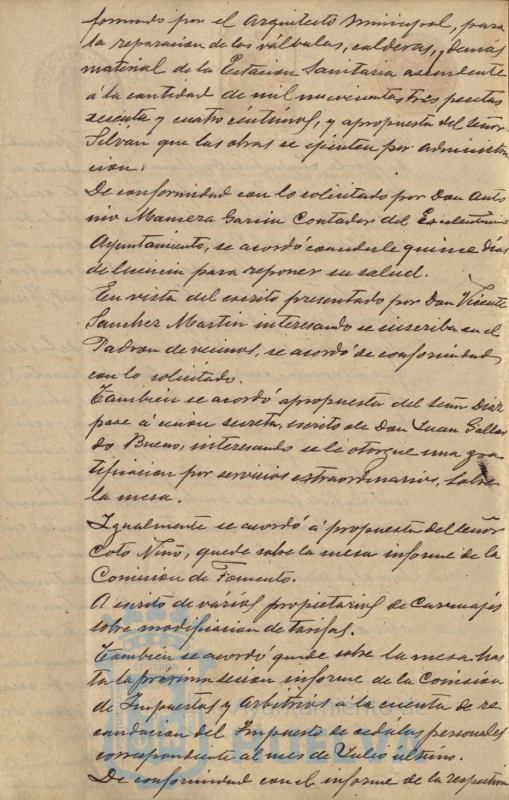 formado por el Arquitecto Municipal, para
la reparacion de las válvulas, calderas, y demás
material de la Estacion Sanitaria ascendente
á la cantidad de mil novecientas tres pesetas
sesenta y cuatro céntimos, y a propuesta del señor
Selván que las obras se ejecuten por administra
cion.
De conformidad con lo solicitado por Don Anto
nio Manzera Garcia Contador del Excelentisimo
Ayuntamiento, se acordó concederle quince dias
de licencia para reponer su salud.
En vista del escrito presentado por Don Vicente
Sanchez Martin interesando se inscriba en el
Padron de vecinos, se acordó de conformidad
con lo solicitado.
Tambien se acordó a propuesta del señor Diaz
pase á sesion secreta, escrito de Don Juan Gallar
do Bueno, interesando se le otorgue una gra
tificacion por servicios extraordinarios, sobre
la mesa.
Igualmente se acordó á propuesta del señor
Coto Niño, quede sobre la mesa informe de la
Comision de Fomento.
A escrito de vários propietarios de Carruajes
sobre modificacion de tarifas.
Tambien se acordó quede sobre la mesa has
ta la próxima sesion informe de la Comision
de Impuestos y Arbitrios á la cuenta de re
caudacion del Impuesto de cédulas personales
correspondiente al mes de Julio último.
De conformidad con el informe de la respectiva